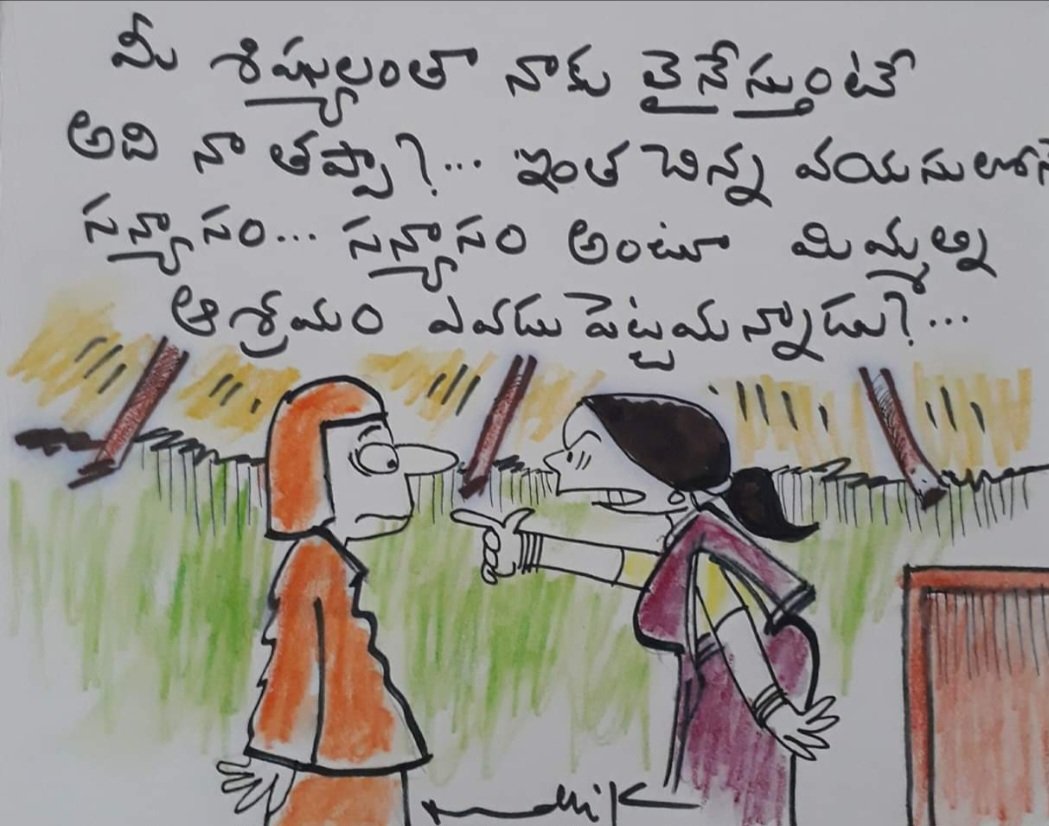 మీ శిష్యులంతా నాకు లైనేస్తుంటే
అది నా తప్పా?... ఇంత చిన్న వయసులోనే
సన్యాసం... సన్యాసం అంటూ మిమ్మల్ని
ఆశ్రమం ఎవడు పెట్టమన్నాడు?...